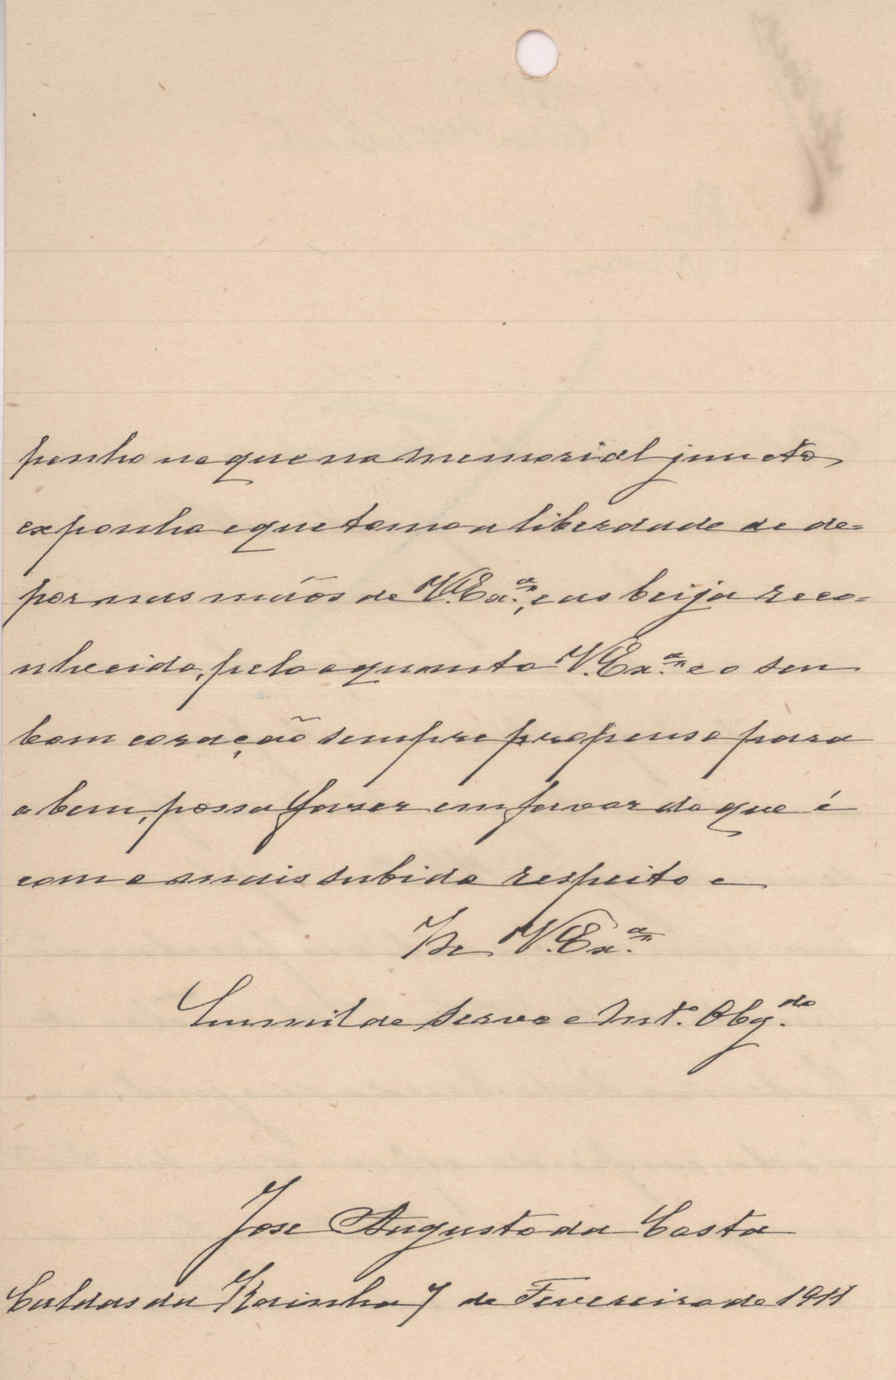 penho no que no memorial juncto
exponho e que tomo a liberdade de de=
por nas mãos de V. Ex.ª, e as beija reco=
nhecido, pelo o quanto V. Ex.ª e o seu
bom coração sempre propenso para
o bem, possa fazer em favor do que é
com o mais subido respeito e
De V. Ex.ª
Humilde servo e Mt.º Obg.do
Jose Augusto da Costa
Caldas da Rainha 7 de Fevereiro de 1911